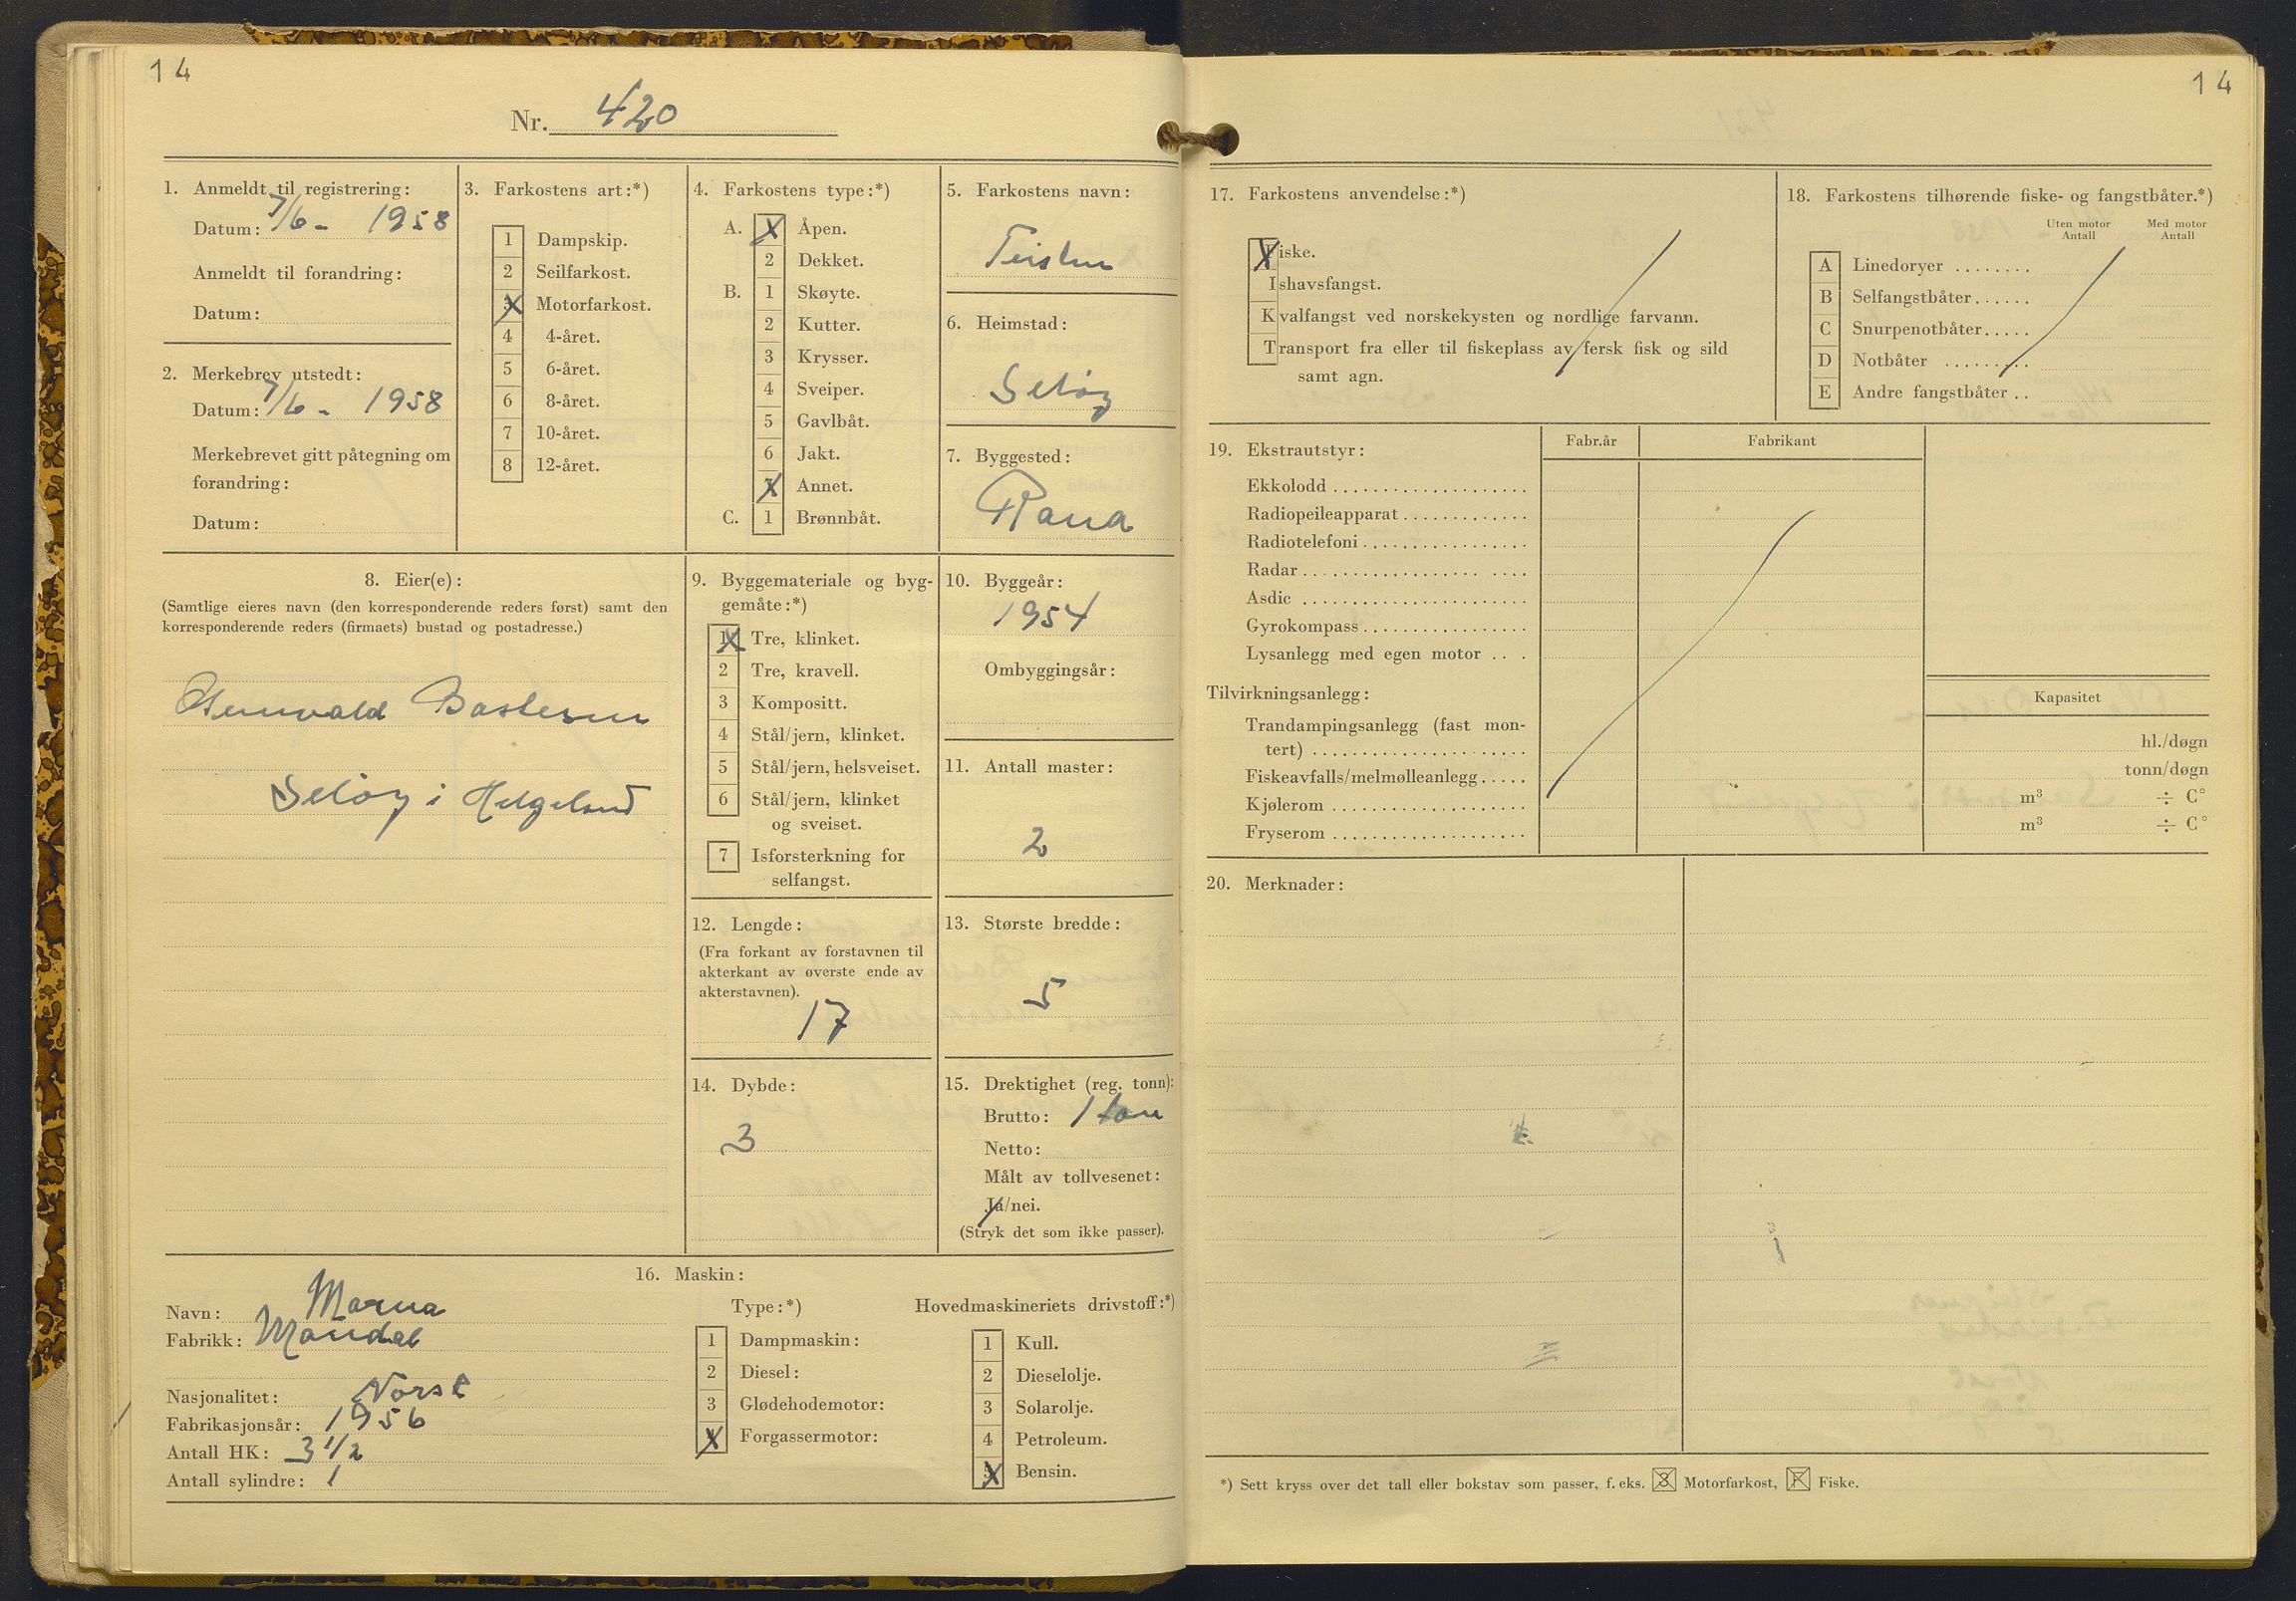 14
Nr. 420
1. Anmeldt til registrering:
Datum: 7/6 - 1958
Anmeldt til forandring:
Datum:
2. Merkebrev utstedt:
Datum: 7/6 - 1958
Merkebrevet gitt påtegning om
forandring:
Datum:
3. Farkostens art:*)
1 Dampskip.
2 Seilfarkost.
X Motorfarkost.
4 4-året.
5 6-året.
6 8-året.
7 10-året.
8 12-året.
4. Farkostens type:*)
A. X Åpen.
2 Dekket.
B. 1 Skøyte.
2 Kutter.
3 Krysser.
4 Sveiper.
5 Gavlbåt.
6 Jakt.
X Annet.
C. 1 Brønnbåt.
5. Farkostens navn:
6. Heimstad:
Seløy
7. Byggested:
Rana
8. Eier(e):
(Samtlige eieres navn (den korresponderende reders først) samt den
korresponderende reders (firmaets) bustad og postadresse.)
Bastesen
Seløy i Helgeland
9. Byggemateriale og byg-
gemåte:*)
X Tre, klinket.
2 Tre, kravell.
3 Kompositt.
4 Stål/jern, klinket.
5 Stål/jern, helsveiset.
6 Stål/jern, klinket
og sveiset.
7 Isforsterkning for
selfangst.
10. Byggeår:
1954
Ombyggingsår:
11. Antall master:
2
12. Lengde:
(Fra forkant av forstavnen til
akterkant av øverste ende av
akterstavnen).
17
13. Største bredde:
5
14. Dybde:
3
15. Drektighet (reg. tonn):
Brutto: 1 tonn
Netto:
Målt av tollvesenet:
Ja/nei.
(Stryk det som ikke passer).
16. Maskin:
Navn: Marna
Fabrikk: Mandal
Nasjonalitet: Norsk
Fabrikasjonsår: 1956
Antall HK: 3 1/2
Antall sylindre: 1
Type:*)
1 Dampmaskin:
2 Diesel:
3 Glødehodemotor:
X Forgassermotor:
Hovedmaskineriets drivstoff:*)
1 Kull.
2 Dieselolje.
3 Solarolje.
4 Petroleum.
X Bensin.
14
17. Farkostens anvendelse:*)
Fiske.
Ishavsfangst.
Kvalfangst ved norskekysten og nordlige farvann.
Transport fra eller til fiskeplass av fersk fisk og sild
samt agn.
18. Farkostens tilhørende fiske- og fangstbåter.*)
Uten motor Med motor
Antall Antall
A Linedoryer ........
B Selfangstbåter......
C Snurpenotbåter.....
D Notbåter .........
E Andre fangstbåter ..
19. Ekstrautstyr:
Fabr.år Fabrikant
Ekkolodd ....................
Radiopeileapparat .............
Radiotelefoni .................
Radar .................. ....
Asdic .......................
Gyrokompass .................
Lysanlegg med egen motor ...
Tilvirkningsanlegg:
Trandampingsanlegg (fast mon-
tert) ......................
Fiskeavfalls/melmølleanlegg .....
Kjølerom ....................
Fryserom ....................
Kapasitet
hl./døgn
tonn/døgn
m³ ÷ C°
m³ ÷ C°
20. Merknader:
*) Sett kryss over det tall eller bokstav som passer, f. eks. 3 Motorfarkost, F Fiske.